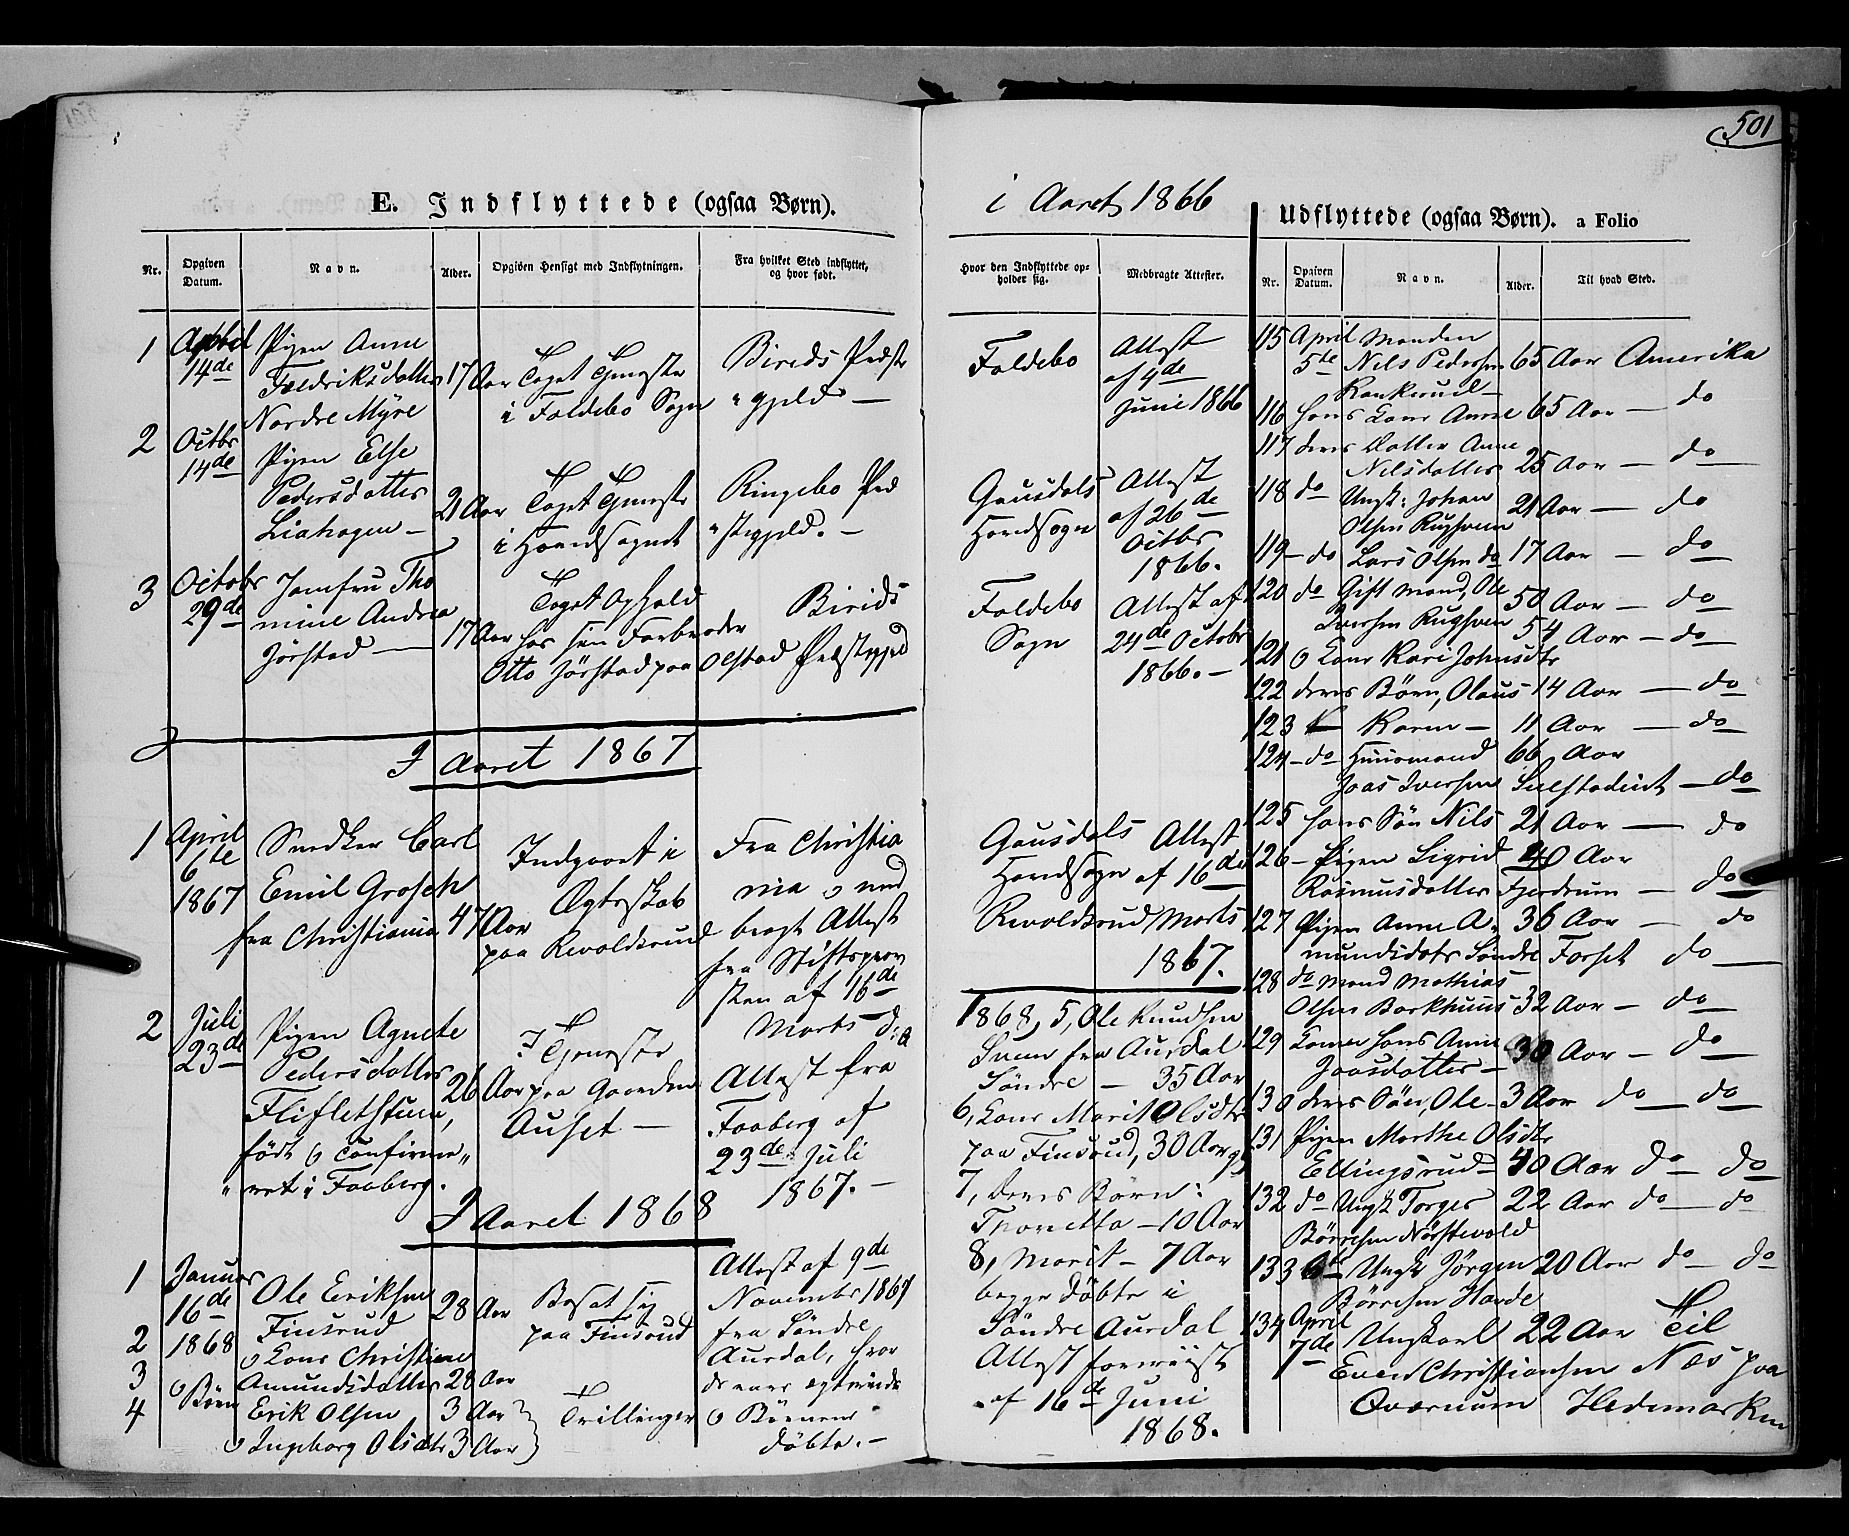 501
E. Indflyttede (ogsaa Børn).
i Aaret 1866
Nr.
Opgiven Datum.
Navn.
Alder.
Opgiven Hensigt med Indflytningen.
Fra hvilket Sted indflyttet, og hvor født.
Hvor den Indflyttede opholder sig.
Medbragte Attester.
1 April Pigen Anne
14de Fredriksdatter 17 Aar Taget Tjeneste Birids Præste
Nordre Myre i Foldebo Sogn gjeld
Foldebo Attest
af 4de
Juni 1866
2 Octbr Pigen Else
14de Pedersdatter 21 Aar Taget Tjeneste Ringebo Præ
Liahagen i Hovedsognet stegjeld.
Gausdals Attest
Hovedsogn af 26de
Octbr
1866.
3 Octobr Jomfru Tho
29de mine Andrea 17 Aar Taget Ophold Birids
Jørstad hos sin Farbroder
Otto Jørstad paa Olstad Præstegjeld
Foldebo Attest af
Sogn 24de Octobr
1866.
I Aaret 1867
1 April Snedker Carl Indgaaet i Fra Christia
6te Emil Grosch Ægteskab nia o med
1867 fra Christiania 47 Aar paa Revoldsrud bragt Attest
fra Stiftsprov
sten af 16de
Marts d:a
Gausdals Attest
Hovedsogn af 16de
Revoldsrud Marts
1867.
2 Juli Pigen Agnete I Tjeneste
23de Pedersdatter 26 Aar paa Gaarden Attest fra
Flifletstuen, Auset Faaberg af
født o confirme 23de Juli
ret i Faaberg. 1867.
I Aaret 1868
1 Januar Ole Eriksen 28 Aar Bosat sig Attest af 9de
16de Finsrud paa Finsrud Novembr 1867
2 1868 o Kone Christiane fra Søndre
Amundsdatter 28 Aar Aurdal, hvor
3 o Børn Erik Olsen 3 Aar Trillinger o Børnene
4 o Ingeborg Olsdtr 3 Aar døbte.
1868, 5, Ole Knudsen
fra Aurdal
Søndre 35 Aar
6, Kone Marit Olsdtr
paa Finsrud, 30 Aar
7, deres Børn:
10 Aar
8, Marit 7 Aar
begge døbte i
Søndre Aurdal
Attest
af 16de Juni
1868.
Udflyttede (ogsaa Børn). a Folio
Nr.
Opgiven Datum.
Navn.
Alder.
Til hvad Sted.
115 April Manden
5te Nils Pedersen 65 Aar Amerika
Kankerud
116 hans Kone Anne 65 Aar do
117 deres Datter Anne
Nilsdatter 25 Aar do
118 do Ungk: Johan
Olsen Rugsveen 21 Aar do
119 do Lars Olsen do 17 Aar do
120 do Gift Mand, Ole
Iversen Rugsveen 50 Aar do
121 o Kone Kari Johnsdtr 54 Aar do
122 deres Børn, Olaus 14 Aar do
123 Karen 11 Aar do
124 do Huusmand 66 Aar
Joas Iversen Sulstadeiet do
125 hans Søn Nils 21 Aar do
126 Pigen Sigrid 40 Aar
Rasmusdatter Fjerdrum do
127 Pigen Anne A- 36 Aar do
mundsdatr Søndre Forset do
128 do Mand Mathias
Olsen Bækhuus 32 Aar do
129 Kone hans Anne
Joasdatter 30 Aar do
130 deres Søn, Ole 3 Aar do do
131 Pigen Marthe Olsdtr
Ellingsrud 40 Aar do do
132 do Ungk Torger 22 Aar do do
Børresen
133 6te Ungk Jørgen 20 Aar do do
Børresen
134 April
7de Ungkarl 22 Aar Til
Even Christiansen Næs paa
Hedemarken